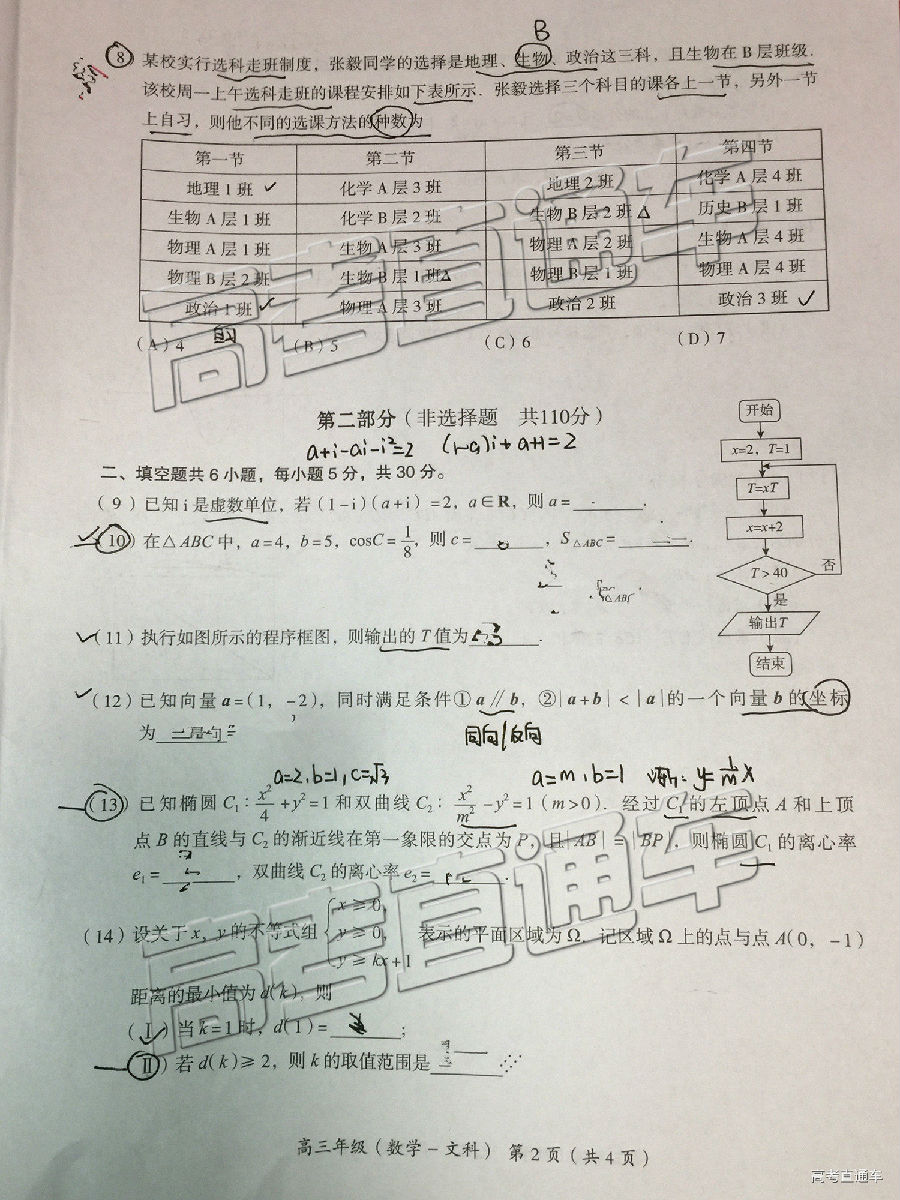 B
8 某校实行选科走班制度，张毅同学的选择是地理、生物、政治这三科，且生物在 B 层班级.
该校周一上午选科走班的课程安排如下表所示. 张毅选择三个科目的课各上一节，另外一节
上自习，则他不同的选课方法的种数为
第一节 第二节 第三节 第四节
地理 1 班 化学 A 层 3 班 地理 2 班 化学 A 层 4 班
生物 A 层 1 班 化学 B 层 2 班 生物 B 层 2 班 历史 B 层 1 班
物理 A 层 1 班 生物 A 层 3 班 物理 A 层 2 班 生物 A 层 4 班
物理 B 层 2 班 生物 B 层 1 班 物理 B 层 1 班 物理 A 层 4 班
政治 1 班 物理 A 层 3 班 政治 2 班 政治 3 班
(A) 4 (B) 5 (C) 6 (D) 7
高考直通车
第二部分（非选择题 共110分）
a+i-ai-i²=2 (1-a)i+a+1=2
二、填空题共 6 小题，每小题 5 分，共 30 分。
（9）已知 i 是虚数单位，若 (1-i)(a+i)=2，a∈R，则 a= .
（10）在△ABC 中，a=4，b=5，cosC=1/8，则 c= ，S△ABC= .
（11）执行如图所示的程序框图，则输出的 T 值为 .
开始
x=2，T=1
T=xT
x=x+2
T>40 否
是
输出T
结束
（12）已知向量 a=(1，-2)，同时满足条件① a∥b，②|a+b|<|a|的一个向量 b 的坐标
为
同向/反向
a=2，b=1，c=√3 a=m，b=1 y=1/m x
（13）已知椭圆 C₁：x²/4+y²=1 和双曲线 C₂：x²/m²-y²=1 (m>0). 经过 C₁ 的左顶点 A 和上顶
点 B 的直线与 C₂ 的渐近线在第一象限的交点为 P，且|AB|=|BP|，则椭圆 C₁ 的离心率
e₁= ，双曲线 C₂ 的离心率 e₂= .
（14）设关于 x，y 的不等式组 {x≥0， y≥0， y≥kx+1 表示的平面区域为 Ω. 记区域 Ω 上的点与点 A(0，-1)
距离的最小值为 d(k)，则
（Ⅰ）当 k=1 时，d(1)= ；
（Ⅱ）若 d(k)≥2，则 k 的取值范围是
高考直通车
高三年级（数学－文科） 第 2 页（共 4 页）
高考直通车